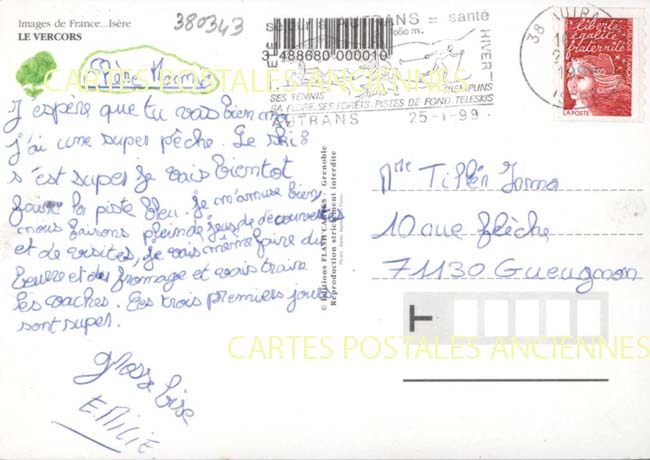 Images de France...Isère
LE VERCORS
380343
séjour à AUTRANS = santé
HIVER
3 488680 000010
1050 m.
TREMPLINS
SES TENNIS
SA FLORE, SES FORÊTS, PISTES DE FOND, TELESKIS
AUTRANS 25-1-99
38 AUTRANS
liberté
égalité
fraternité
LA POSTE
CARTES POSTALES ANCIENNES
Chère Mamie
J'espère que tu vais bien moi
j'ai une super pêche. Le ski
s'est super je vais bientot
faire la piste bleu. Je m'amuse bien,
nous faisons plein de jeux de découvertes
et de visites, je vais même faire du
beurre et du fromage et vais traire
les vaches. Les trois premiers jours
sont super.
grosse bise
EMILIE
© Editions FLASH CARTES - Grenoble
Reproduction strictement interdite
Mme Tillér Irma
10 rue flèche
71130 Gueugnon
CARTES POSTALES ANCIENNES